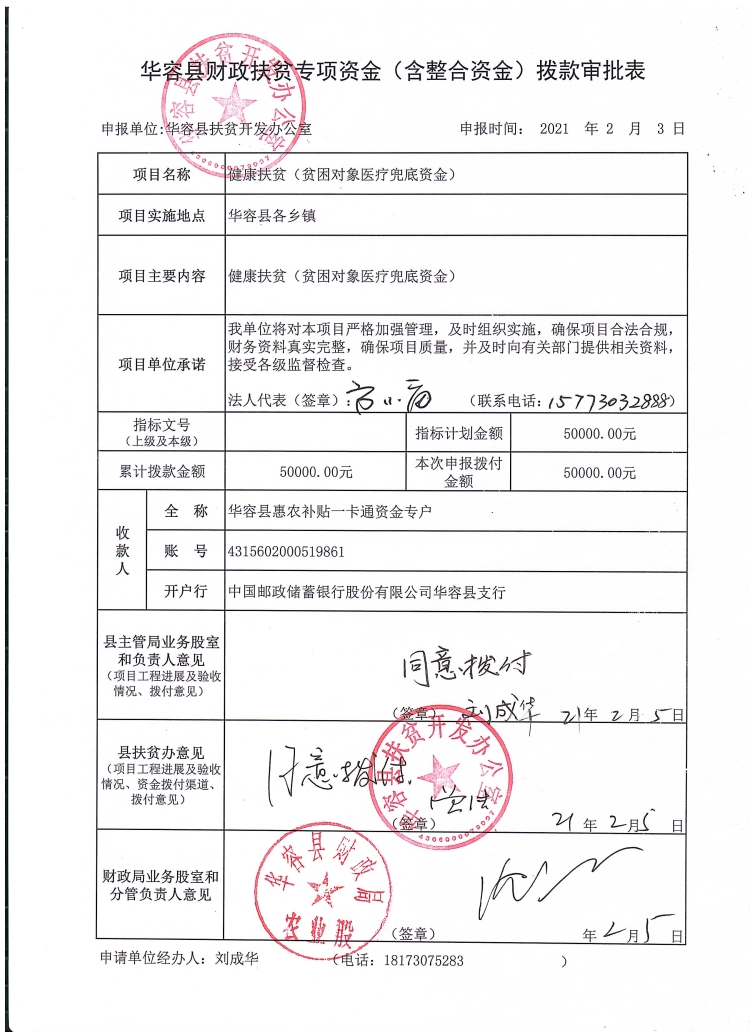 华容县财政扶贫专项资金（含整合资金）拨款审批表
申报单位:华容县扶贫开发办公室 申报时间： 2021 年 2 月 3 日
项目名称 健康扶贫（贫困对象医疗兜底资金）
项目实施地点 华容县各乡镇
项目主要内容 健康扶贫（贫困对象医疗兜底资金）
我单位将对本项目严格加强管理，及时组织实施，确保项目合法合规，
财务资料真实完整，确保项目质量，并及时向有关部门提供相关资料，
项目单位承诺 接受各级监督检查。
法人代表（签章）： （联系电话：15773032888）
指标文号
（上级及本级）
指标计划金额 50000.00元
累计拨款金额 50000.00元
本次申报拨付
金额
50000.00元
收款人
全 称 华容县惠农补贴一卡通资金专户
账 号 4315602000519861
开户行 中国邮政储蓄银行股份有限公司华容县支行
县主管局业务股室
和负责人意见
（项目工程进展及验收
情况、拨付意见）
同意拨付
（签章） 刘成华 21年 2月 5日
县扶贫办意见
（项目工程进展及验收
情况、资金拨付渠道、
拨付意见）
同意拨付.
（签章） 21 年 2月5 日
华容县扶贫开发办公室
4306000079007
财政局业务股室和
分管负责人意见
华容县财政局
农业股
（签章） 年2月5日
申请单位经办人：刘成华 （电话：18173075283 ）